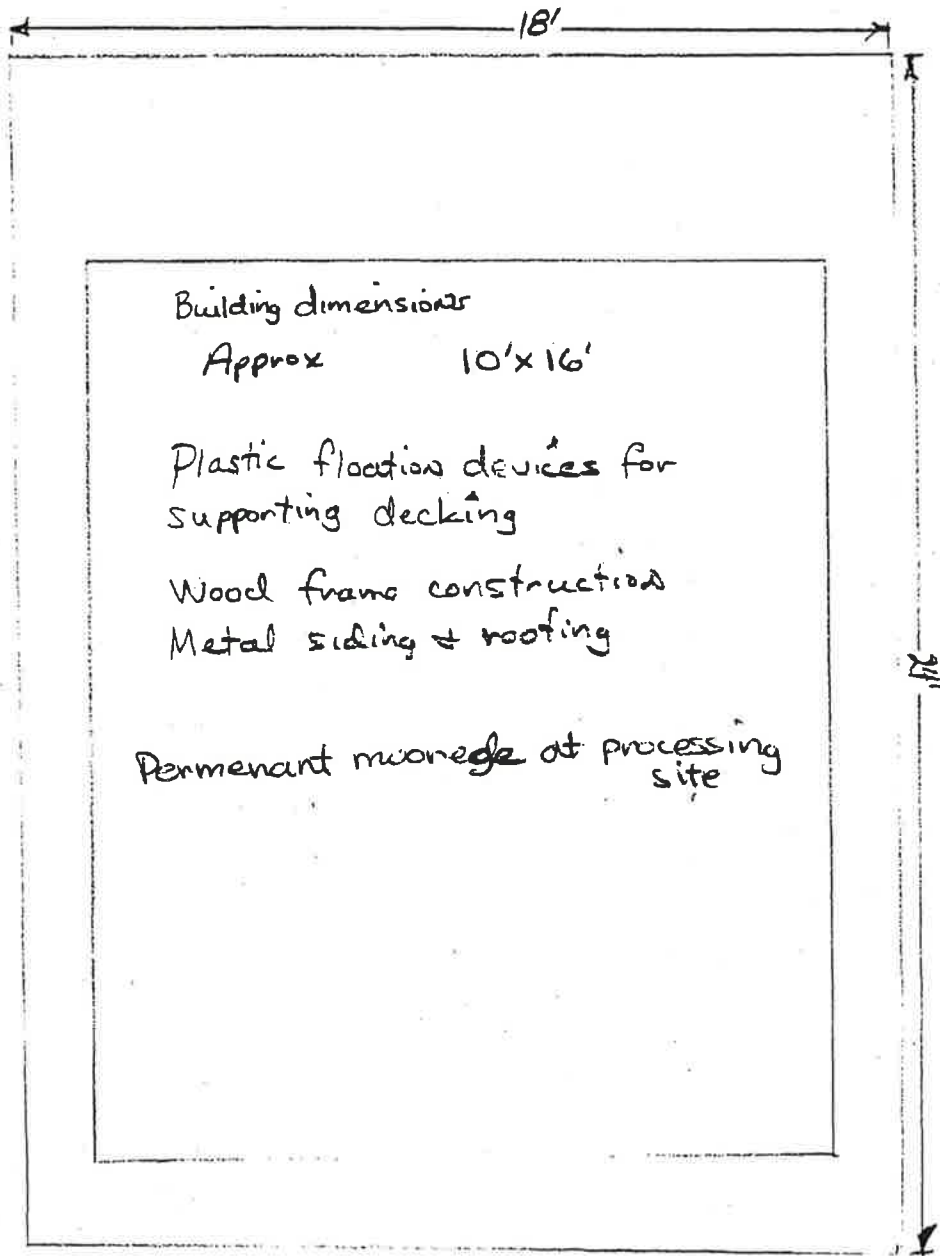 18'
Building dimensions
Approx 10'x 16'
Plastic floation devices for
supporting decking
Wood frame construction
Metal siding & roofing
24'
Permenant moorege at processing
site